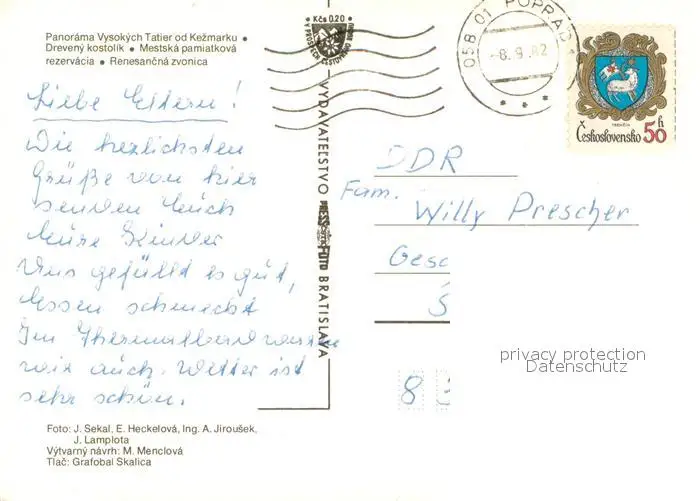 Panoráma Vysokých Tatier od Kežmarku •
Drevený kostolík • Mestská pamiatková
rezervácia • Renesančná zvonica
Liebe Eltern!
Die hezlichsten
Grüße von hier
senden Euch
Eure Kinder
Uns gefüllt es gut,
Essen schmeckt
Im Thermalbad waren
wir auch. Wetter ist
sehr schön.
Foto: J. Sekal, E. Heckelová, Ing. A. Jiroušek,
J. Lamplota
Výtvarný návrh: M. Menclová
Tlač: Grafobal Skalica
Kčs 0.20
VYDAVATEĽSTVO PRESSFOTO BRATISLAVA
058 01 POPRAD 1
-8.9.82
TRENČÍN
Československo 50 h
DDR
Fam. Willy Prescher
Gesc
S
8
privacy protection
Datenschutz